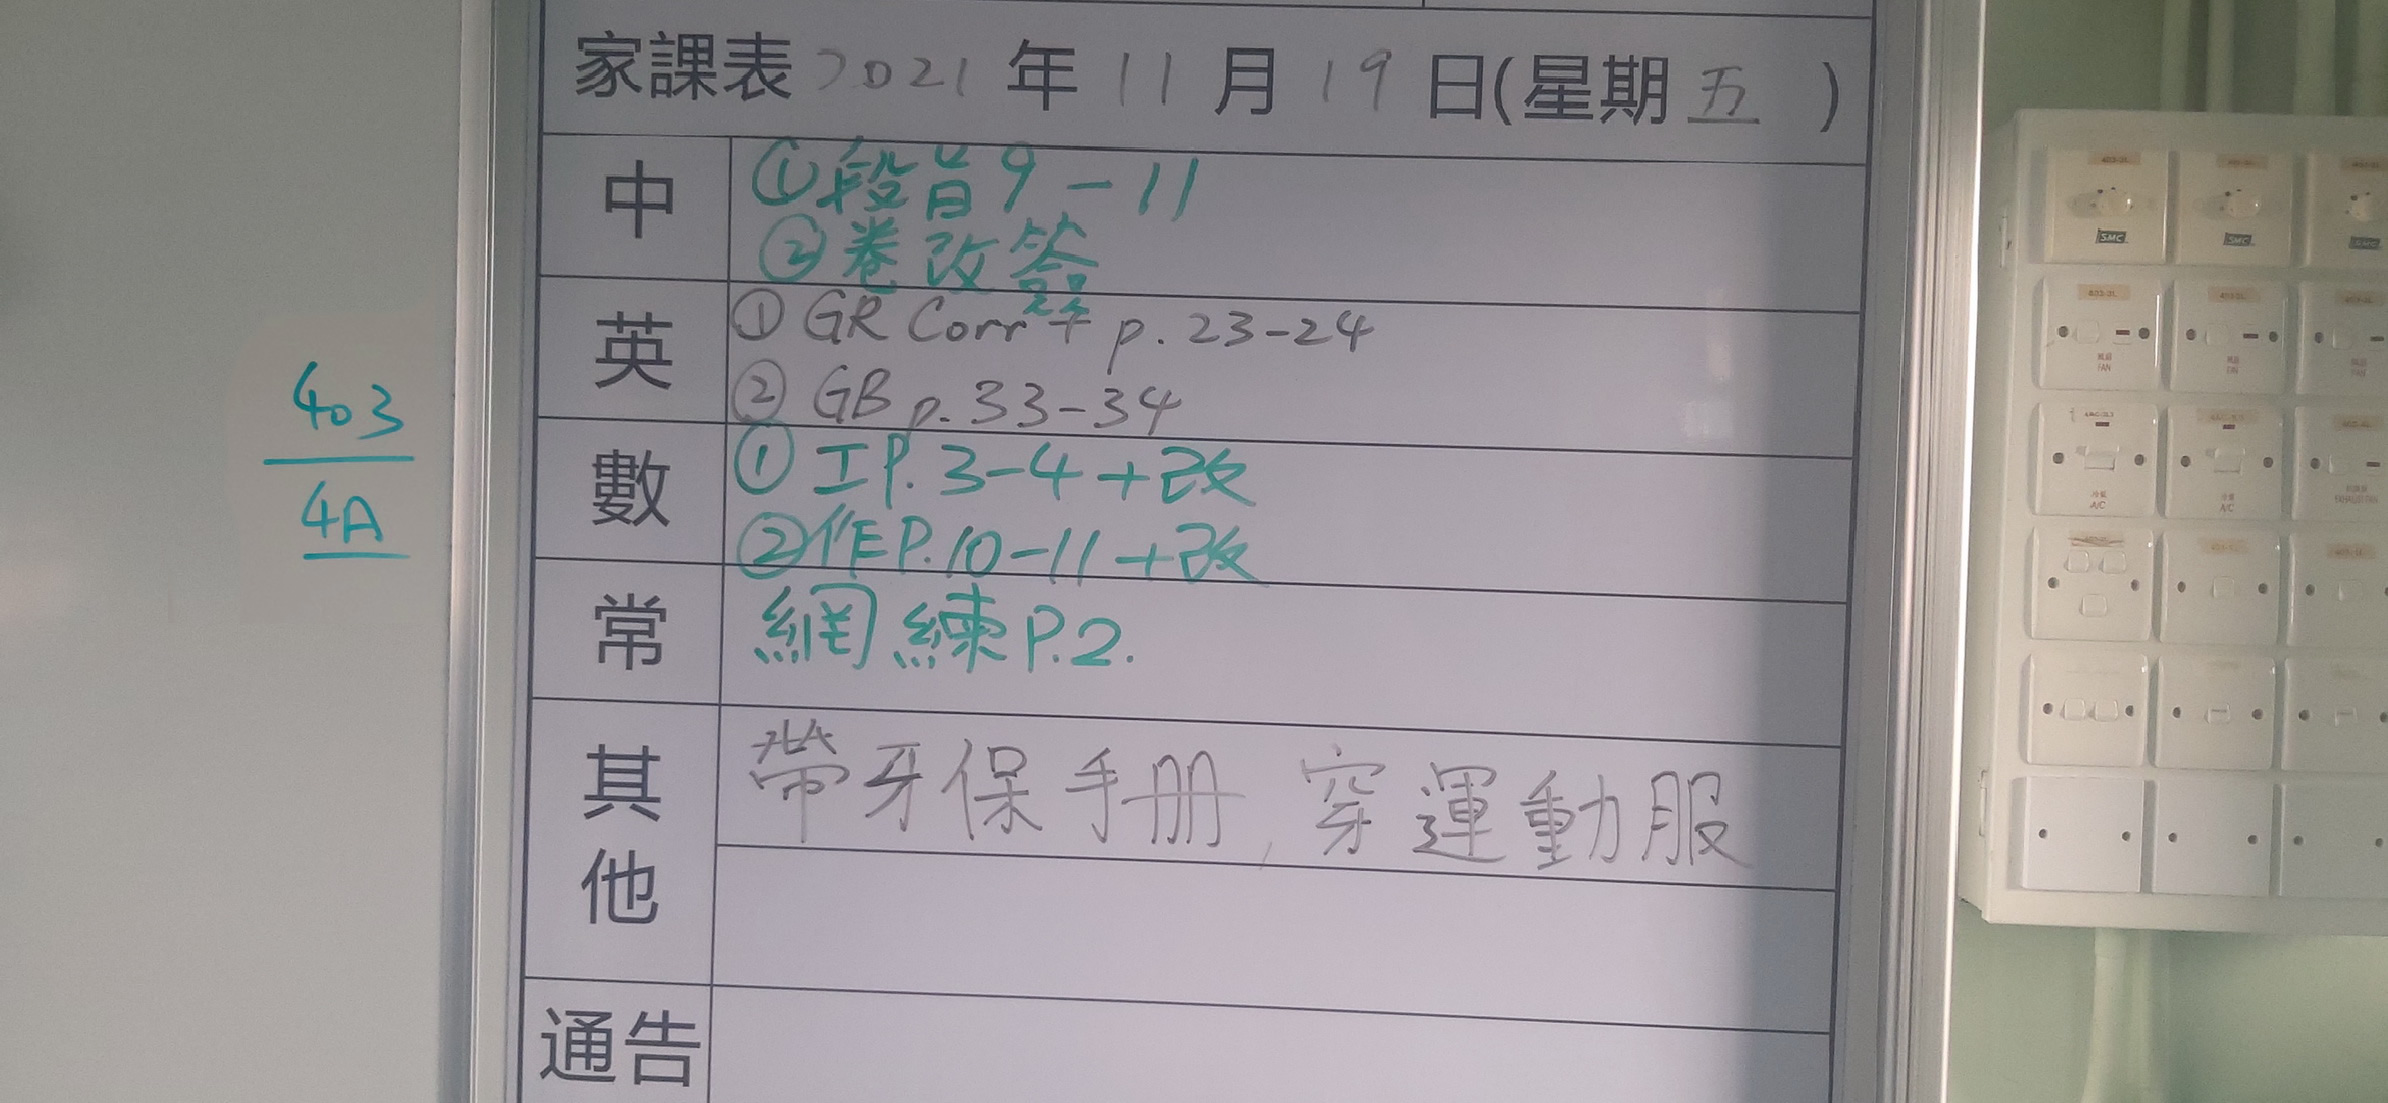 家課表 2021 年 11 月 19 日(星期 五 )
中
①段旨9-11
②卷改簽
英
① GR Corr + p. 23-24
② GB p. 33-34
數
① 工P.3-4+改
②作P.10-11+改
常
網練P.2.
其他
帶牙保手冊, 穿運動服
通告
403
4A
SMC
SMC
SMC
風扇
FAN
冷氣
A/C
冷氣
A/C